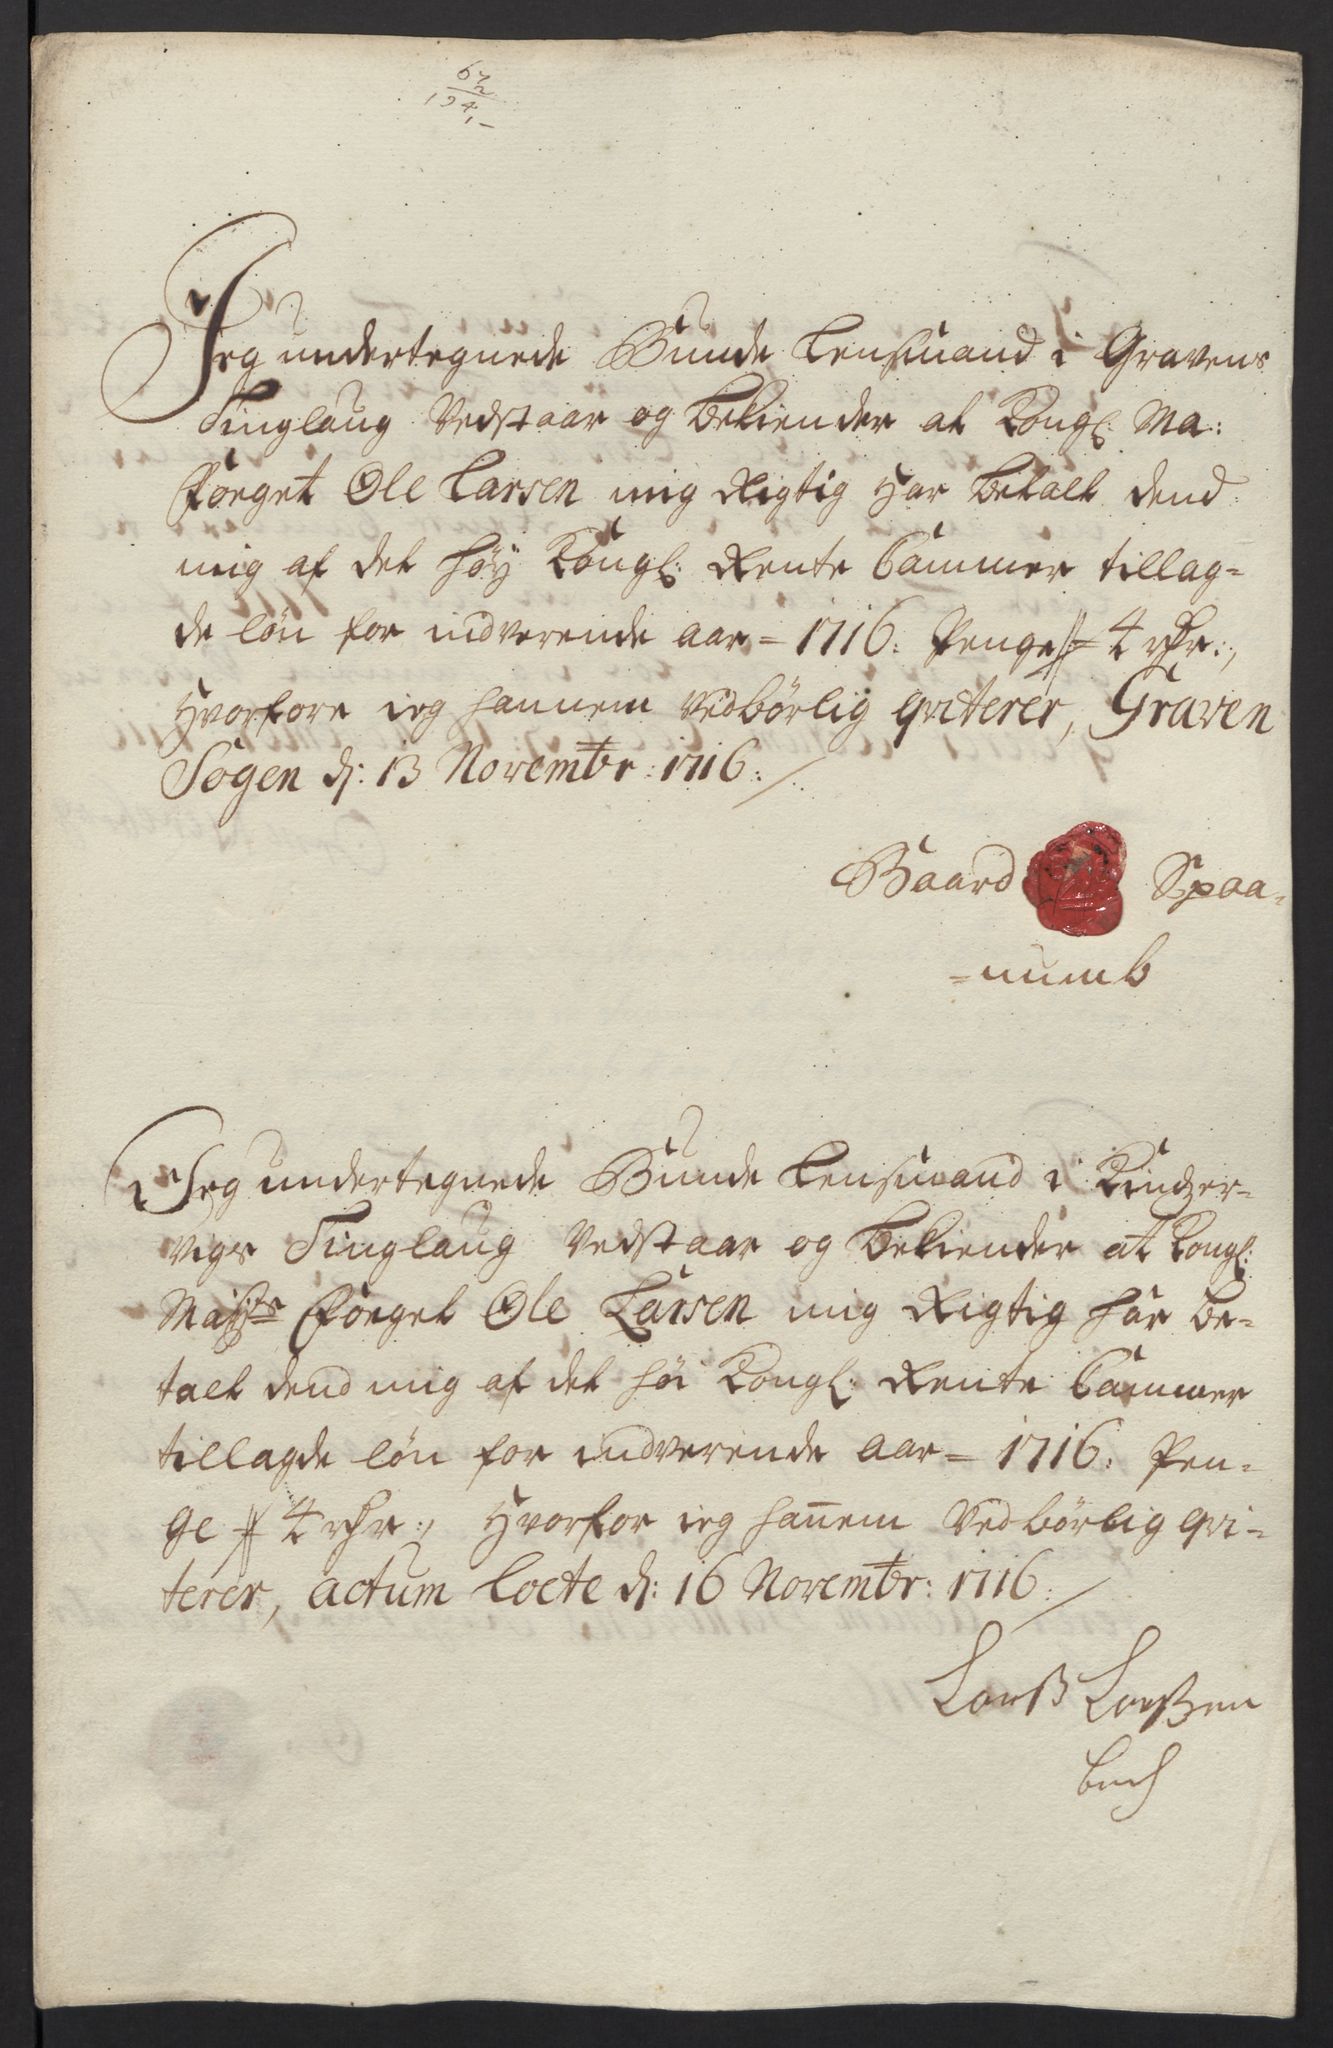 62
194,-
Jeg undertegnede Bunde Lensmand i Gravens
Tinglaug Vedstaar og bekiender at Kongl: Ma:
Foeget Ole Larsen mig Rigtig har betalt dend
mig af det høy Kongl: Rente Cammer tillag=
de løn for indverende aar = 1716. Penge 4 rdr:,
Hvorfore ieg hannem Vedbørlig qviterer, Graven
Sogen d: 13 Novembr: 1716.
Baard Spaa=
=numb
Jeg undertegnede Bunde Lensmand i Kindzer=
vigs Tinglaug Vedstaar og bekiender at Kongl:
Maÿts Foeget Ole Larsen mig Rigtig har be=
talt dend mig af det høi Kongl: Rente Cammer
tillagde løn for indverende aar = 1716. Pen=
ge 4 rdr:, Hvorfor ieg hannem Vedbørlig qvi=
terer, actum Loete d: 16 Novembr: 1716.
Larß Larßen